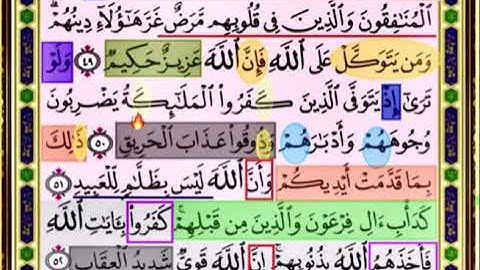 ٱلْمُنَٰفِقُونَ وَٱلَّذِينَ فِى قُلُوبِهِم مَّرَضٌ غَرَّ هَٰٓؤُلَآءِ دِينُهُمْ ۗ
وَمَن يَتَوَكَّلْ عَلَى ٱللَّهِ فَإِنَّ ٱللَّهَ عَزِيزٌ حَكِيمٌ ٤٩ وَلَوْ
تَرَىٰٓ إِذْ يَتَوَفَّى ٱلَّذِينَ كَفَرُوا۟ ٱلْمَلَٰٓئِكَةُ يَضْرِبُونَ
وُجُوهَهُمْ وَأَدْبَٰرَهُمْ وَذُوقُوا۟ عَذَابَ ٱلْحَرِيقِ ٥٠ ذَٰلِكَ
بِمَا قَدَّمَتْ أَيْدِيكُمْ وَأَنَّ ٱللَّهَ لَيْسَ بِظَلَّٰمٍ لِّلْعَبِيدِ ٥١
كَدَأْبِ ءَالِ فِرْعَوْنَ وَٱلَّذِينَ مِن قَبْلِهِمْ ۚ كَفَرُوا۟ بِـَٔايَٰتِ ٱللَّهِ
فَأَخَذَهُمُ ٱللَّهُ بِذُنُوبِهِمْ ۗ إِنَّ ٱللَّهَ قَوِىٌّ شَدِيدُ ٱلْعِقَابِ ٥٢